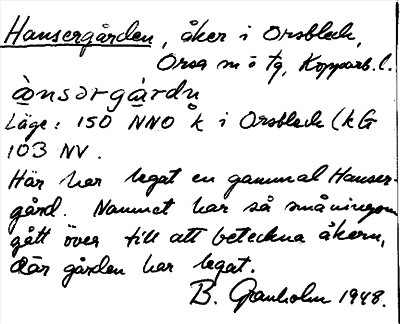 Hansergården, åker i Orsbleck,
Orsa sn o tg, Kopparb. l.
ànsərgàrdn
Läge: 150 NNO k i Orsbleck (kG
103 NV.
Här har legat en gammal Hanser-
gård. Namnet har så småningom
gått över till att beteckna åkern,
där gården har legat.
B. Granholm 1948.